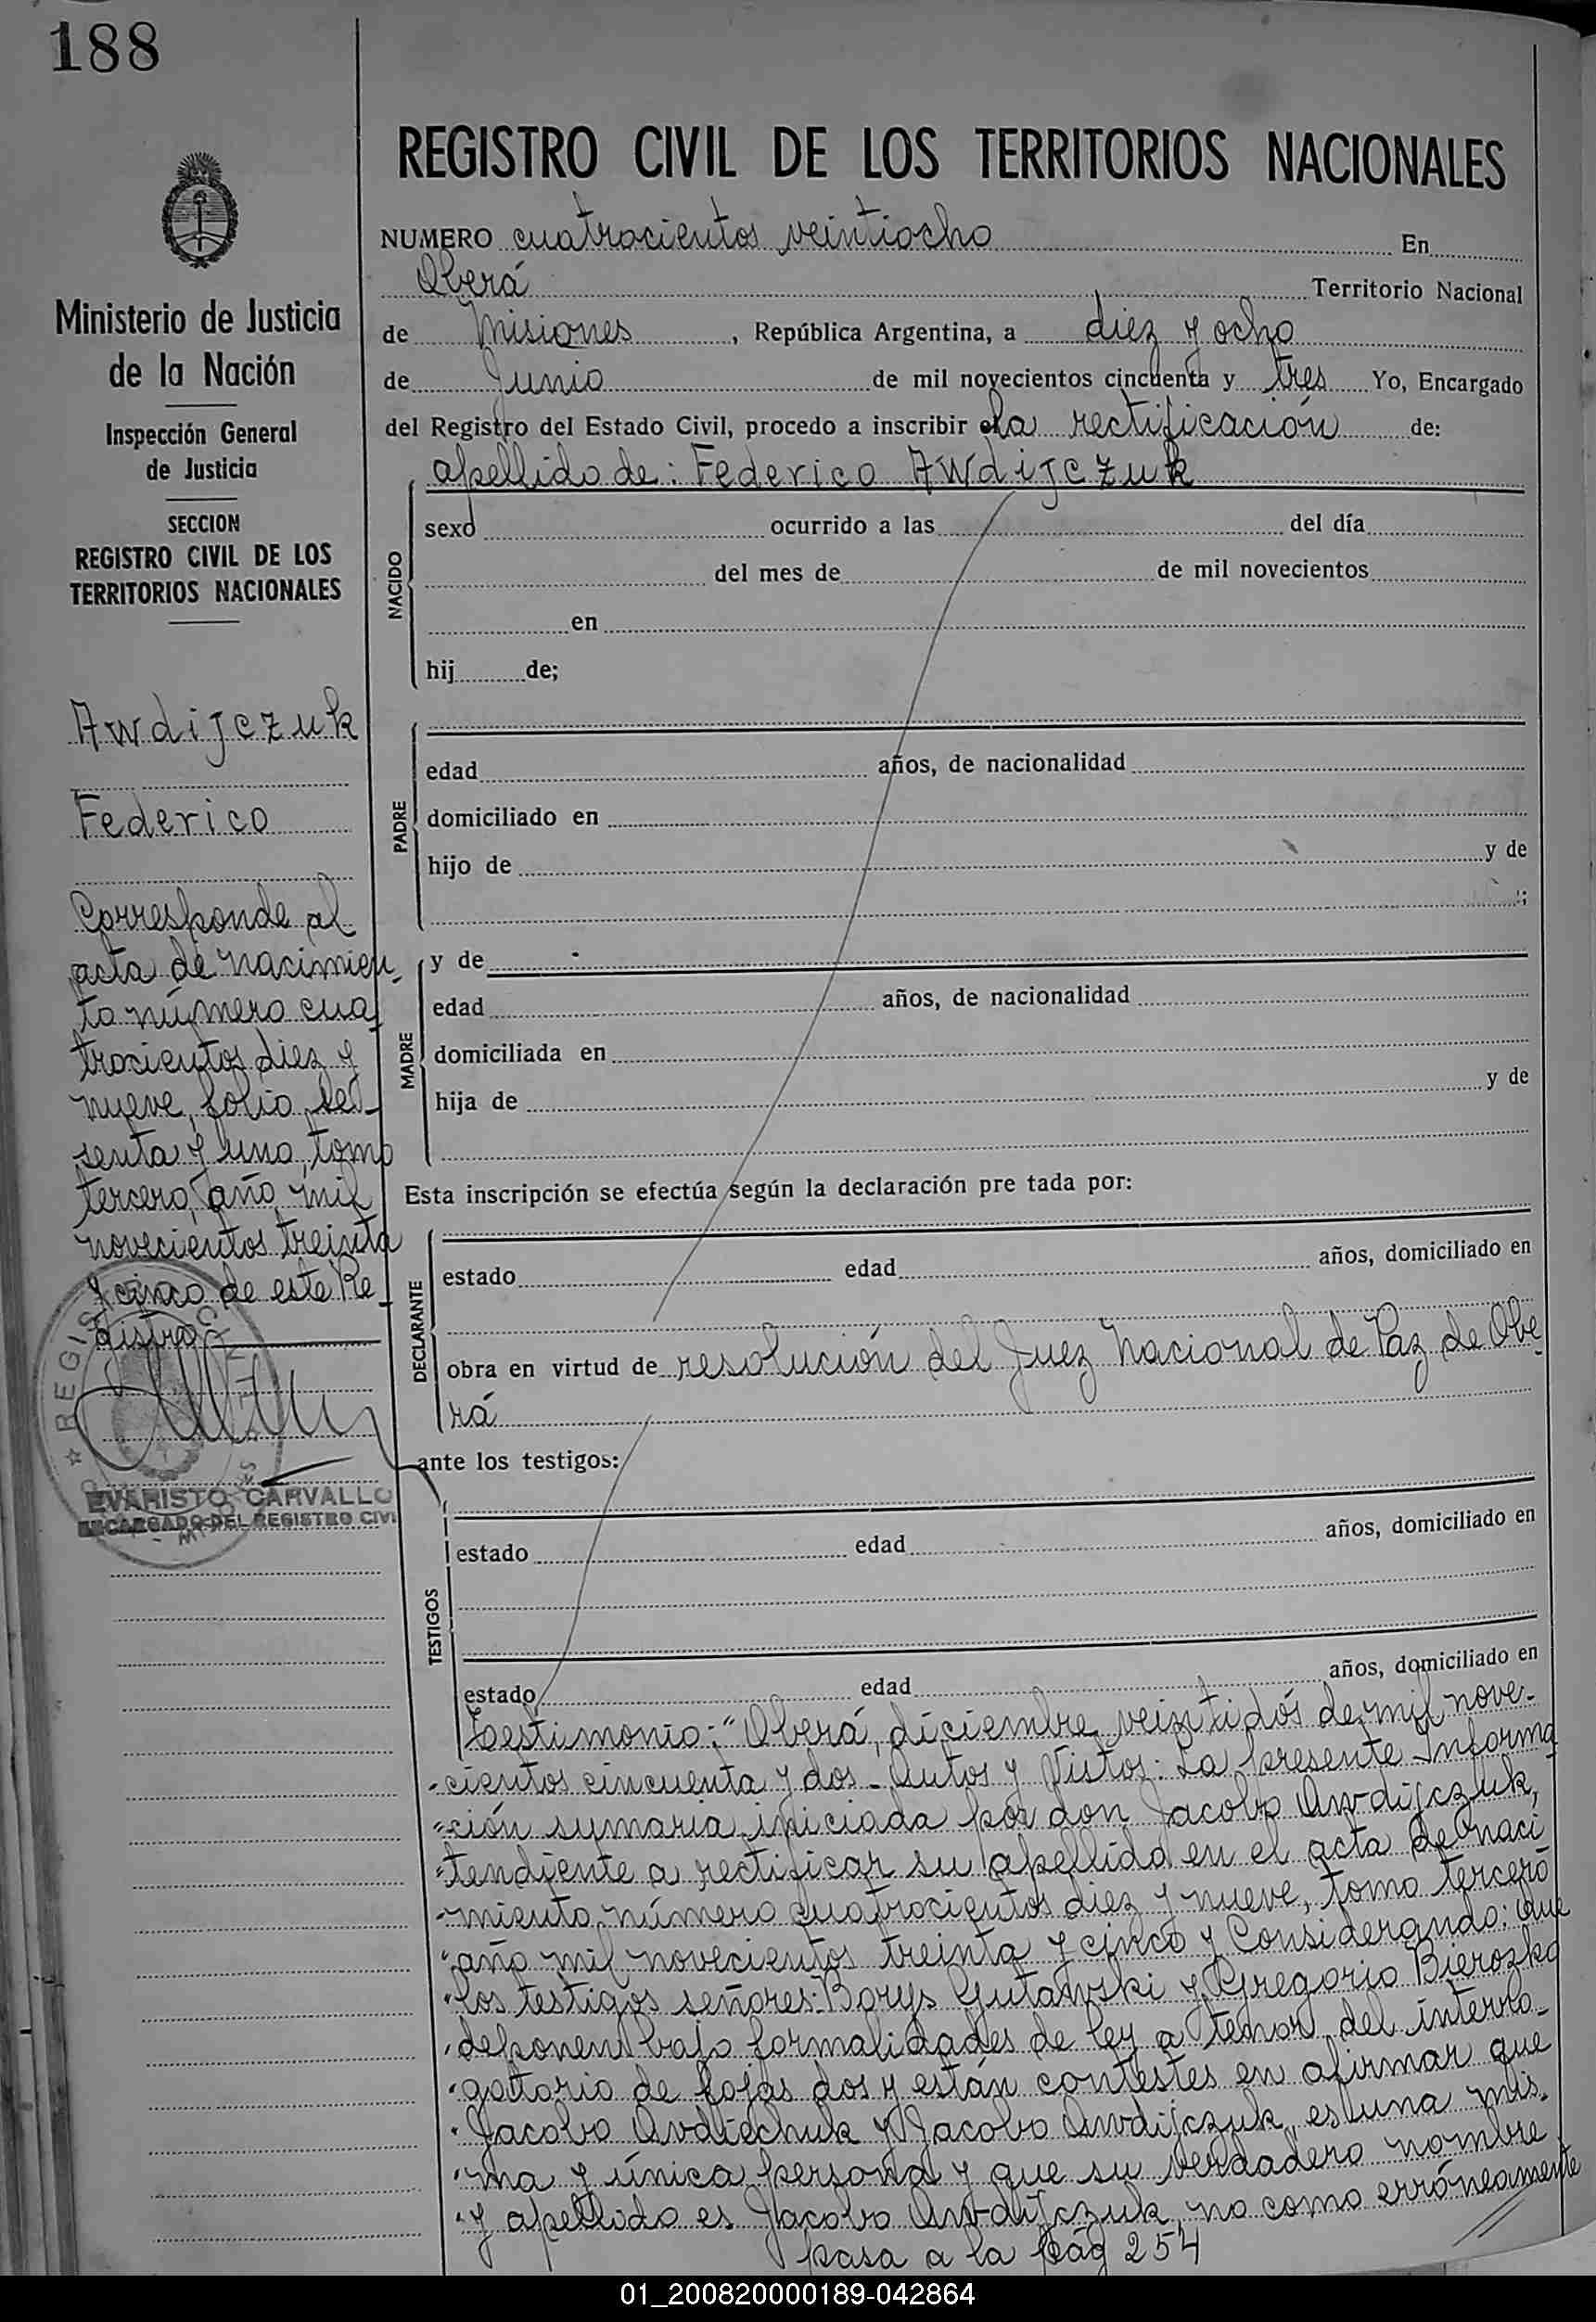 188
REGISTRO CIVIL DE LOS TERRITORIOS NACIONALES
NUMERO cuatrocientos veintiocho En
Oberá Territorio Nacional
de Misiones, República Argentina, a diez y ocho
de Junio de mil novecientos cincuenta y tres Yo, Encargado
del Registro del Estado Civil, procedo a inscribir la rectificación de:
apellido de: Federico Awdijczuk
NACIDO
sexo ocurrido a las del día
del mes de de mil novecientos
en
hij de;
PADRE
edad años, de nacionalidad
domiciliado en
hijo de y de
;
MADRE
y de
edad años, de nacionalidad
domiciliada en
hija de y de
Esta inscripción se efectúa según la declaración pre tada por:
DECLARANTE
estado edad años, domiciliado en
obra en virtud de resolución del Juez Nacional de Paz de Obe
rá
ante los testigos:
TESTIGOS
estado edad años, domiciliado en
estado edad años, domiciliado en
Testimonio: "Oberá, diciembre veintidós de mil nove-
-cientos cincuenta y dos - Autos y Vistos: La presente Informa
"ción sumaria iniciada por don Jacobo Awdijczuk,
"tendiente a rectificar su apellido en el acta de naci
-miento número cuatrocientos diez y nueve, tomo tercero
"año mil novecientos treinta y cinco y Considerando: Que
"los testigos señores: Borys Gutawski y Gregorio Bierozka
"deponen bajo formalidades de ley a tenor del interro-
"gatorio de fojas dos y están contestes en afirmar que
"Jacobo Avdiechuk y Jacobo Awdijczuk, es una mis-
"ma y única persona y que su verdadero nombre
"y apellido es Jacobo Awdijczuk, no como erróneamente
pasa a la pág 254
Ministerio de Justicia
de la Nación
Inspección General
de Justicia
SECCION
REGISTRO CIVIL DE LOS
TERRITORIOS NACIONALES
Awdijczuk
Federico
Corresponde al
acta de nacimien-
to número cua-
trocientos diez y
nueve, folio se-
senta y uno, tomo
tercero, año mil
novecientos treinta
y cinco de este Re-
gistro
EVARISTO CARVALLO
ENCARGADO DEL REGISTRO CIVI
01_200820000189-042864